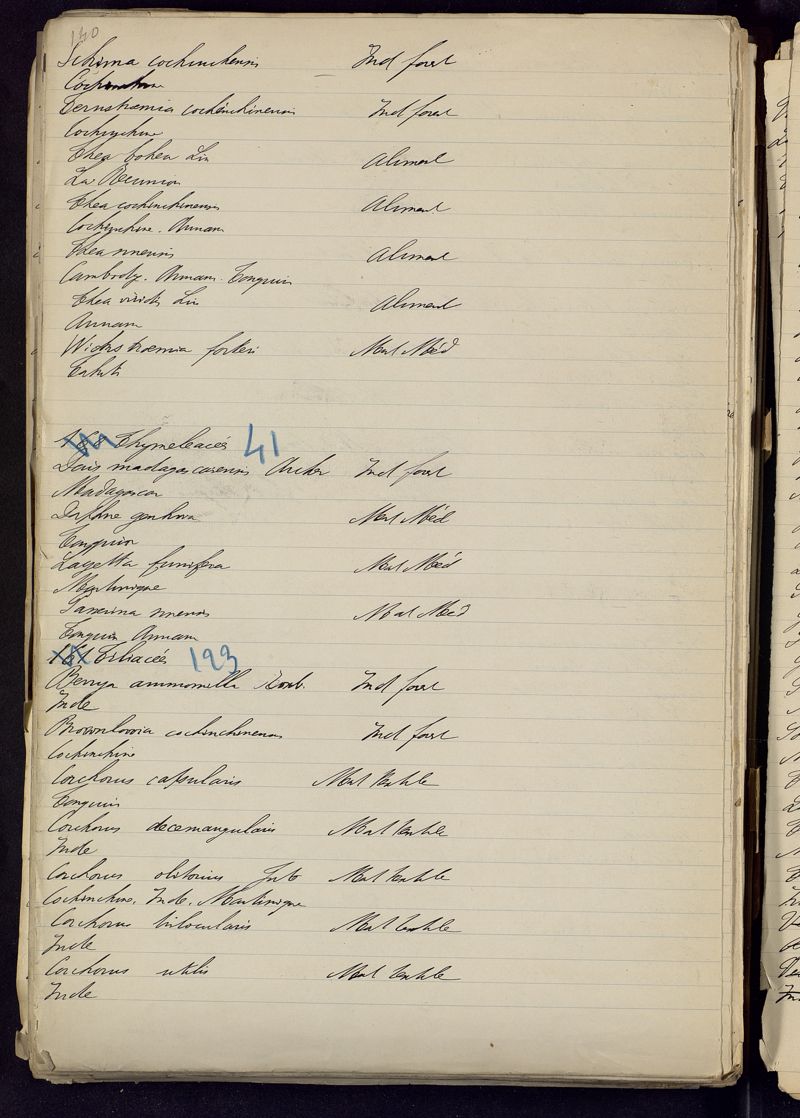 140
Schima cochinchensis Ind forest
Cochinchine
Ternstrœmia cochinchinensis Ind forest
Cochinchine
Thea bohea Lin Aliment
La Réunion
Thea cochinchinensis Aliment
Cochinchine. Annam
Thea sinensis Aliment
Cambodge. Annam. Tonquin
Thea viridis Lin Aliment
Annam
Wickstrœmia forsteri Mat Méd
Tahiti
Thymeleacées 41
Dais madagascarensis Ind forest
Madagascar
Daphne genkwa Mat Méd
Tonquin
Lagetta funifera Mat Méd
Martinique
Passerina sinensis Mat Méd
Tonquin Annam
Tiliacées 123
Berrya ammomilla Roxb. Ind forest
Inde
Brownlowia cochinchinensis Ind forest
Cochinchine
Corchorus capsularis Mat textile
Tonquin
Corchorus decemangularis Mat textile
Inde
Corchorus olitorius Jute Mat textile
Cochinchine. Inde. Martinique
Corchorus trilocularis Mat textile
Inde
Corchorus utilis Mat textile
Inde